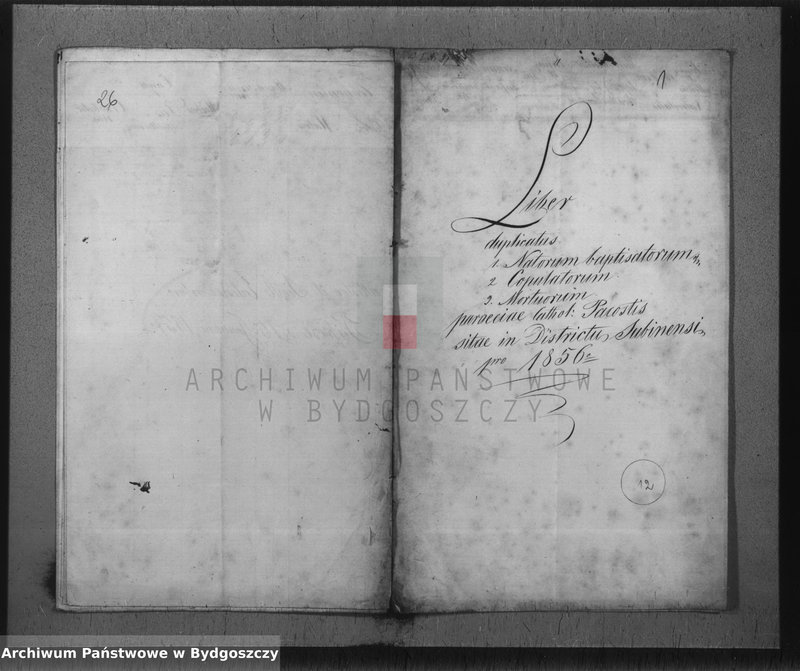 26
1
Liber
duplicatus
1. Natorum baptisatorum,
2. Copulatorum
3. Mortuorum
paroeciae cathol: Pacostis
sitae in Districtu Subinensi,
pro 1856
12
ARCHIWUM PAŃSTWOWE
W BYDGOSZCZY
Archiwum Państwowe w Bydgoszczy